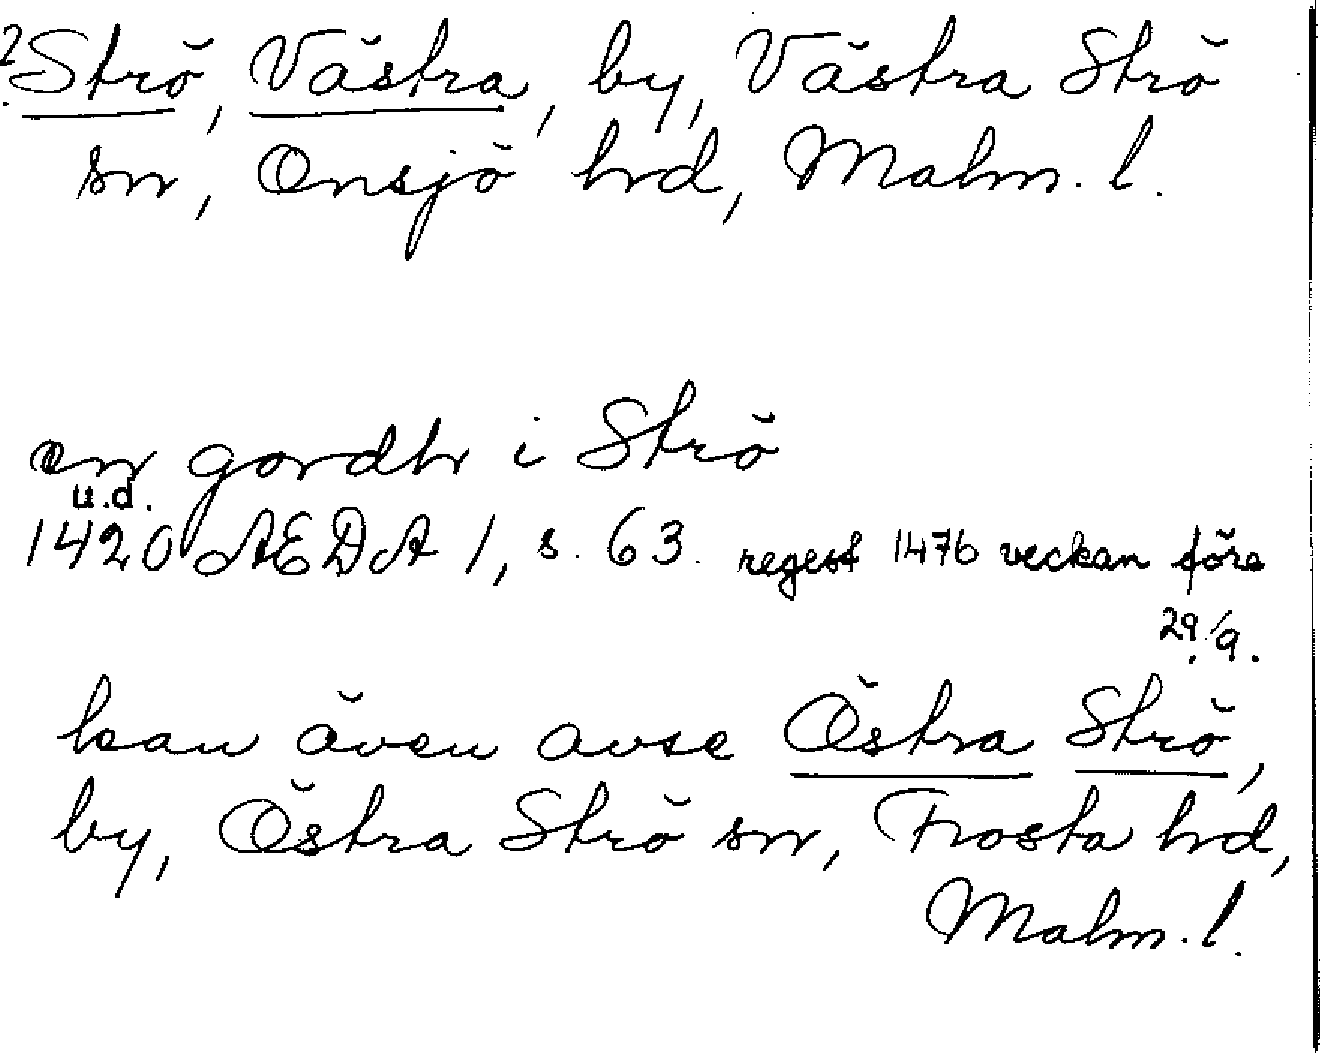 ? Strö, Västra, by, Västra Strö
sn, Onsjö hrd, Malm. l.
en gordh i Strö
u.d.
1420 AEDA 1, s. 63. regest 1476 veckan före
29/9.
kan även avse Östra Strö,
by, Östra Strö sn, Frosta hrd,
Malm. l.